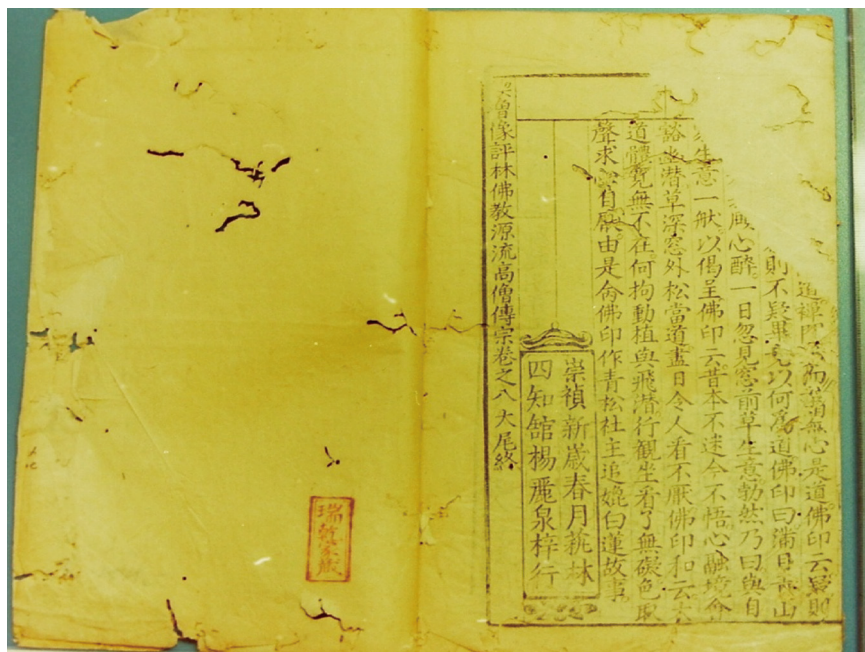 無心是道佛印云疑則
則不疑畢竟以何為道佛印曰滿目青山
心醉一日忽見窓前草生意勃然乃曰與自
生意一般以偈呈佛印云昔本不迷今不悟心融境會
豁幽潛草深窓外松當道盡日令人看不厭佛印和云大
道體寬無不在何拘動植與飛潛行觀坐看了無礙色取
聲求心自厭由是命佛印作青松社主追媲白蓮故事
崇禎新歲春月蓺林
四知舘楊麗泉梓行
像評林佛教源流高僧傳宗卷之八 大尾終